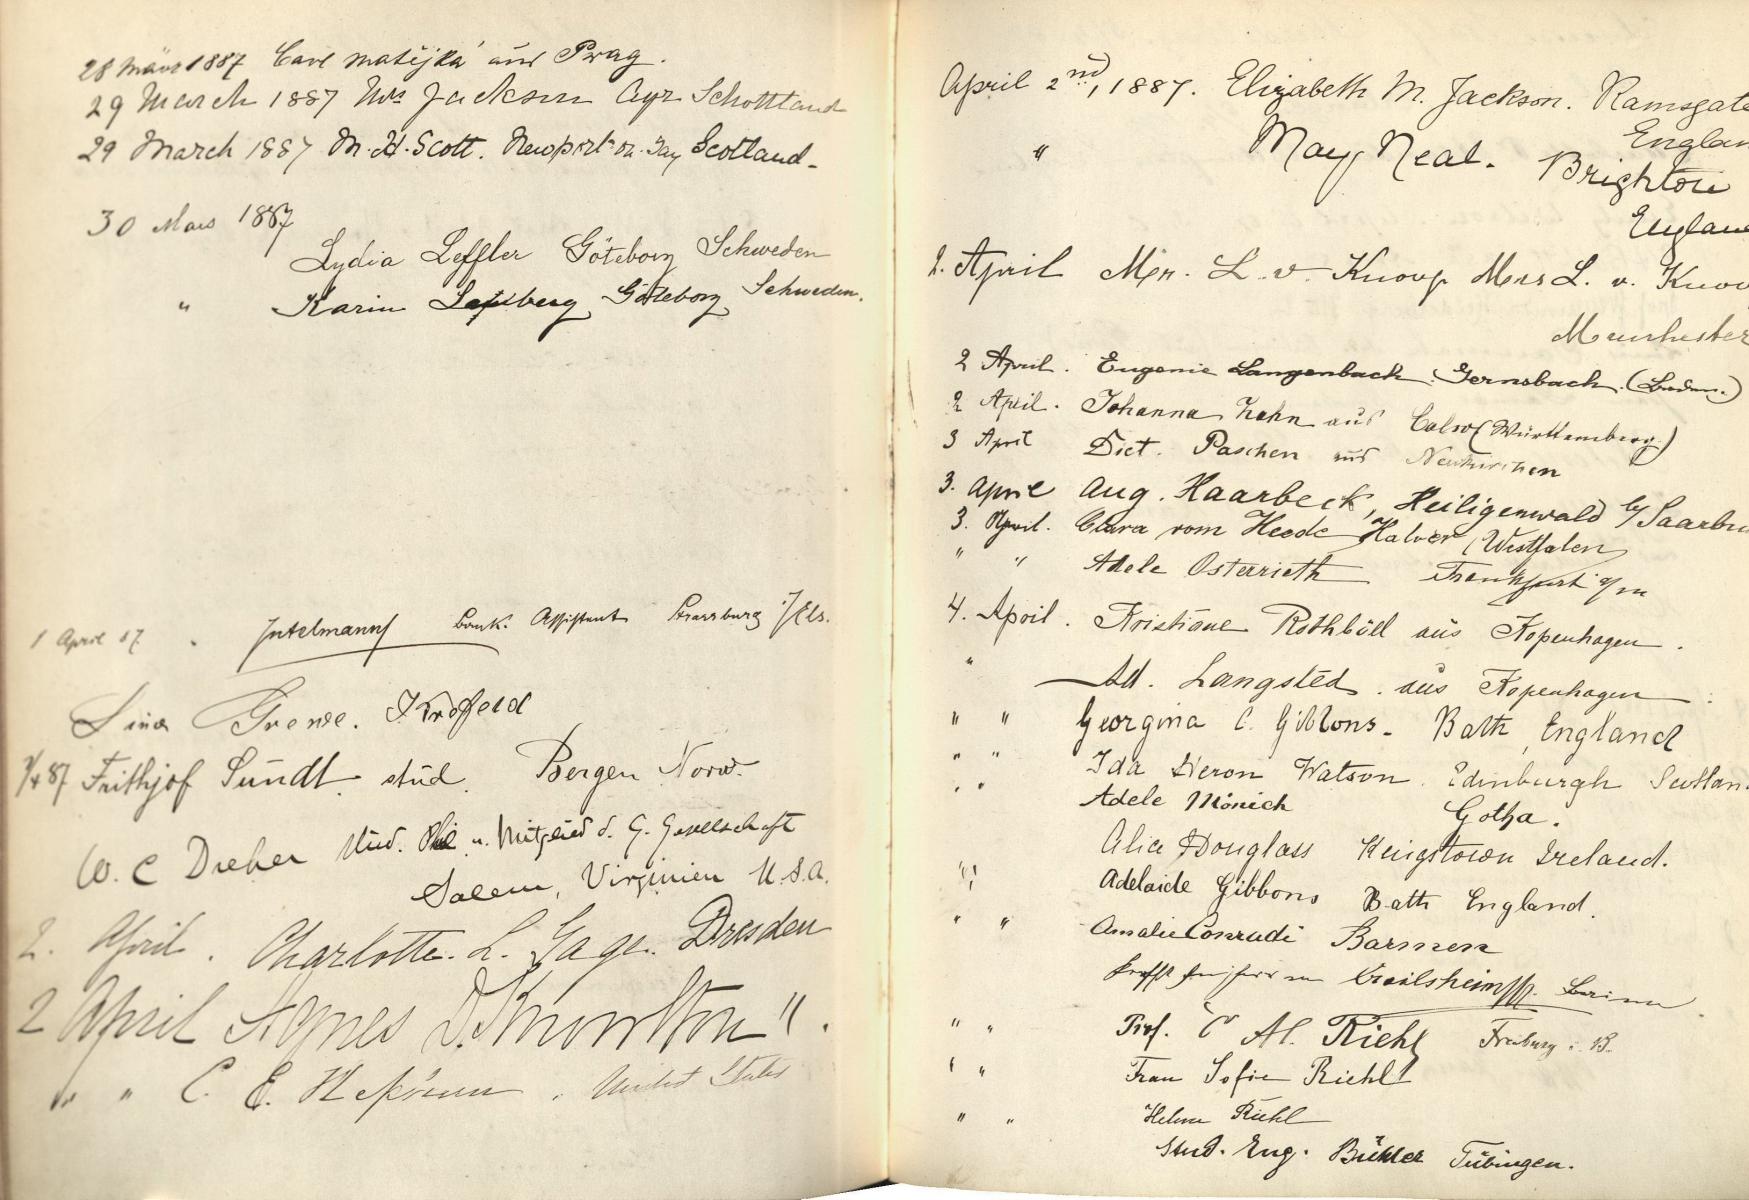 28 März 1887 Carl Matějka aus Prag.
29 March 1887 Mrs Jackson Ayr Schottland
29 March 1887 M. H. Scott. Newport-on-Tay Scotland-
30 Mars 1887
Lydia Leffler Göteborg Schweden
" Karin Göteborg Schweden.
1 April 87. Intelmann Bank. Assistent Strassburg i/Els.
Lina Grewe.
1/4 87 Frithjof Sundt. stud. Bergen Norw.
W. C Dreher Stud. Phil. u. Mitglied d. G. Gesellschaft
Salem, Virginien U.S.A.
2. April. Charlotte. L. Gage. Dresden
2 April Agnes D. Knowlton ".
" " C. E. United States
April 2nd, 1887. Elizabeth M. Jackson. Ramsgate
England
" May Neal. Brighton
England
2. April Mr. L. v. Knoop Mrs L. v. Knoop
Manchester
2 April. Eugenie Langenbach. Gernsbach. (Baden.)
2 April. Johanna Zahn aus Calw (Württemberg.)
3 April Diet. Paschen aus Neukirchen
3. April Aug. Haarbeck, Heiligenwald b/Saarbrü
3. April. Clara vom Heede Halver (Westfalen)
" " Adele Osterrieth Frankfurt a/m
4. April. Kristiane Rothböll aus Kopenhagen.
" Ad. Langsted. aus Kopenhagen.
" " Georgina C. Gibbons. Bath, England
" " Ida Heron Watson. Edinburgh Scotlan
" " Adele Mönich Gotha.
Alice Douglass Kingstown Ireland.
" Adelaide Gibbons Bath England.
" " Amalie Conradi Barmen
Crailsheim
" " Prof. Al. Riehl Freiburg i. B.
" " Frau Sofie Riehl
" " Helene Riehl
Stud. Eug. Bühler Tübingen.